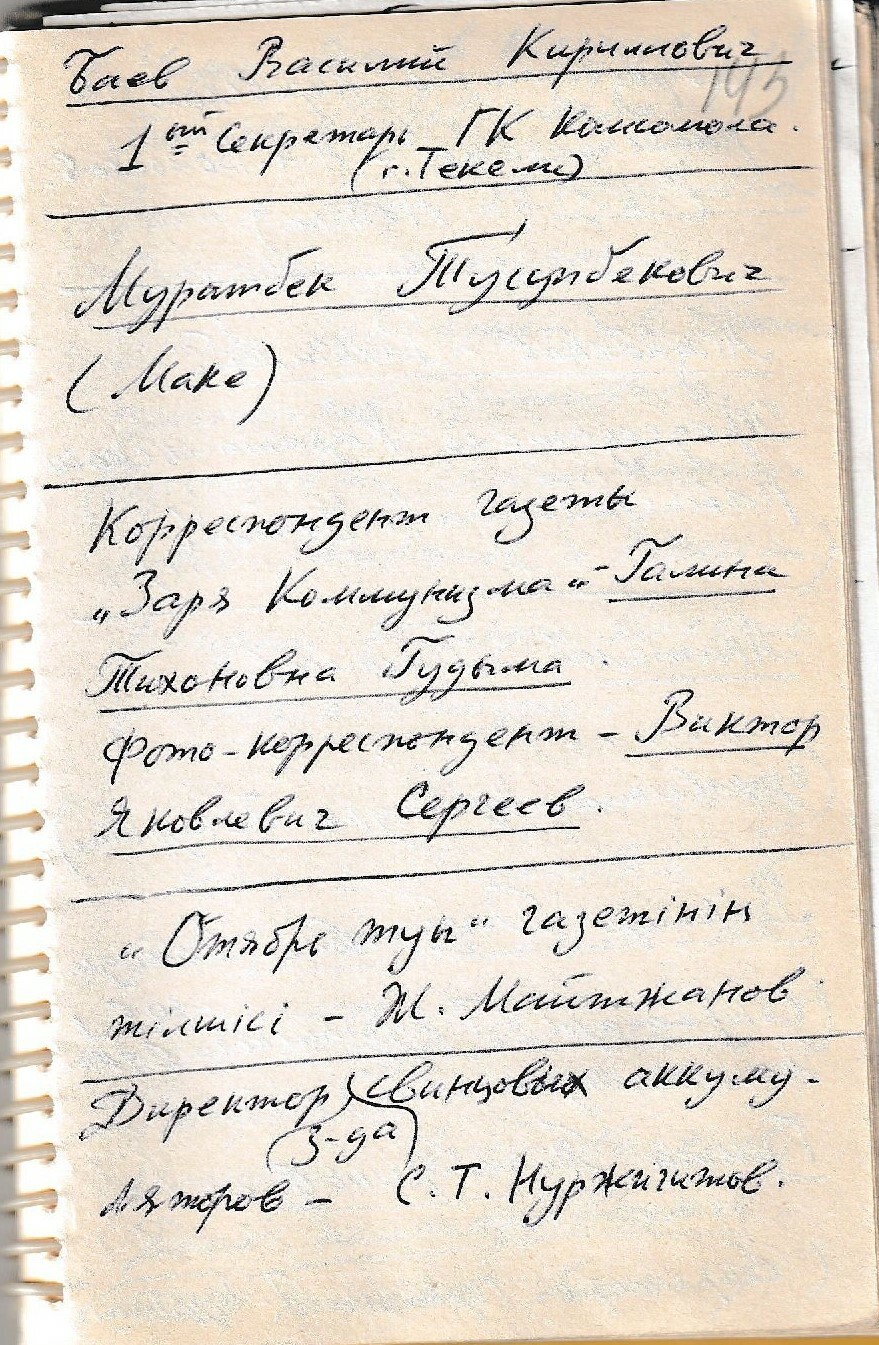 Баев Василий Кириллович
145
1ый Секретарь ГК Комсомола.
(г. Текели)
Муратбек Тусупбекович
(Маке)
Корреспондент газеты
„Заря Коммунизма“ - Галина
Тихоновна Гудыма.
Фото-корреспондент - Виктор
Яковлевич Сергеев.
„Отябрь туы“ газетінін
тілшісі - Ж. Майтжанов
Директор свинцовых аккуму-
(з-да)
ляторов - С. Т. Нуржигитов.